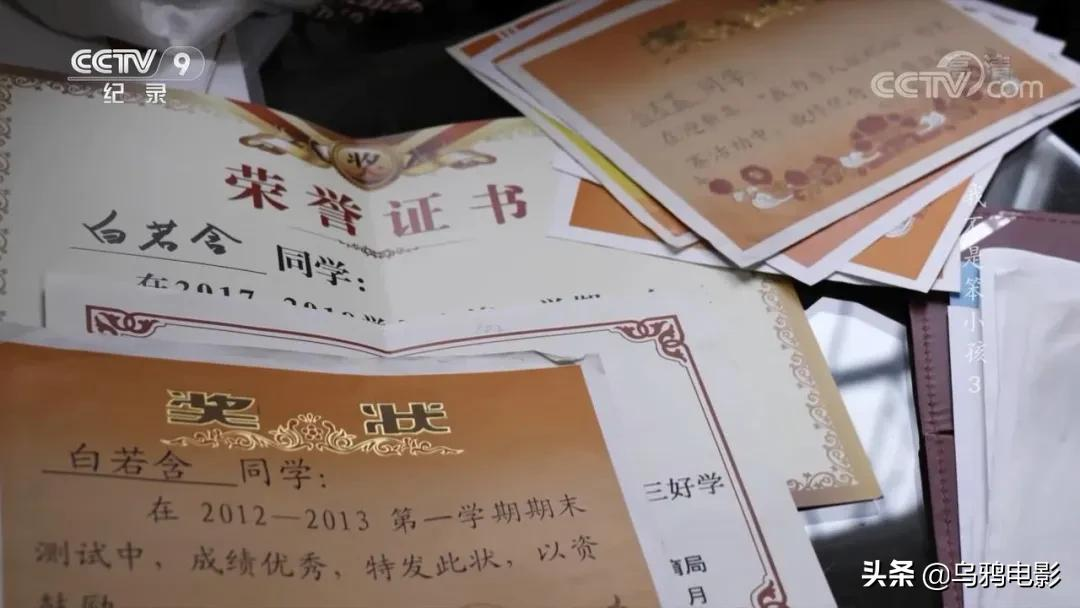 CCTV 9
纪录
高清
CCTV.com
同学
荣誉证书
白若含 同学:
在2017-2018学
三好学
局
月
奖状
白若含 同学:
在 2012—2013 第一学期期末
测试中，成绩优秀，特发此状，以资
鼓励
我不是笨小孩 3
头条 @乌鸦电影